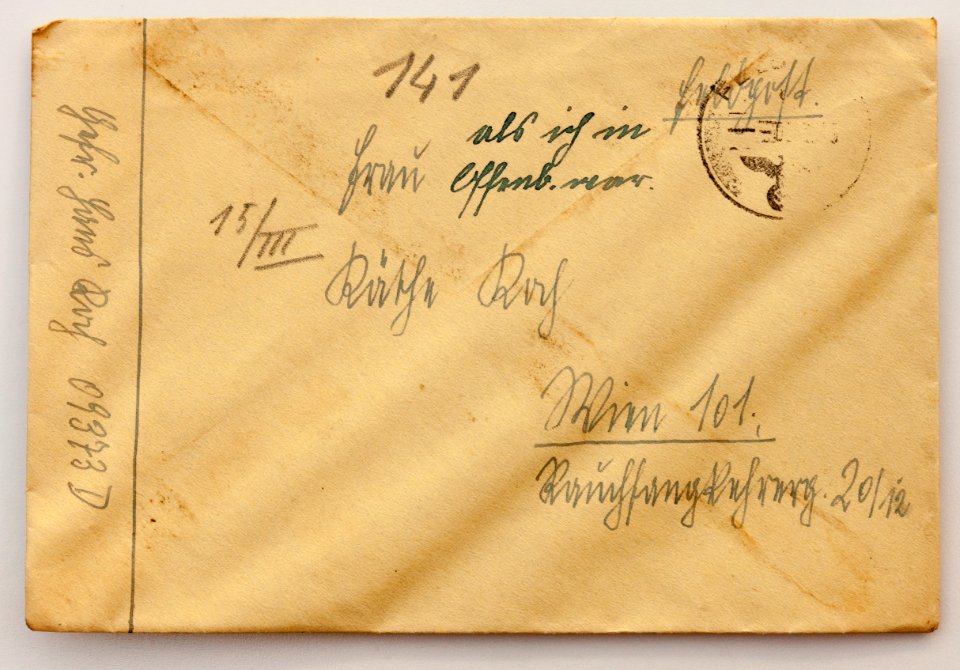 141
Feldpost.
als ich in
Offenb. war.
Frau
15/III
Käthe Koch
Wien 101.
Rauchfangkehrerg. 20/12
Gefr. Hans Koch 09373 D